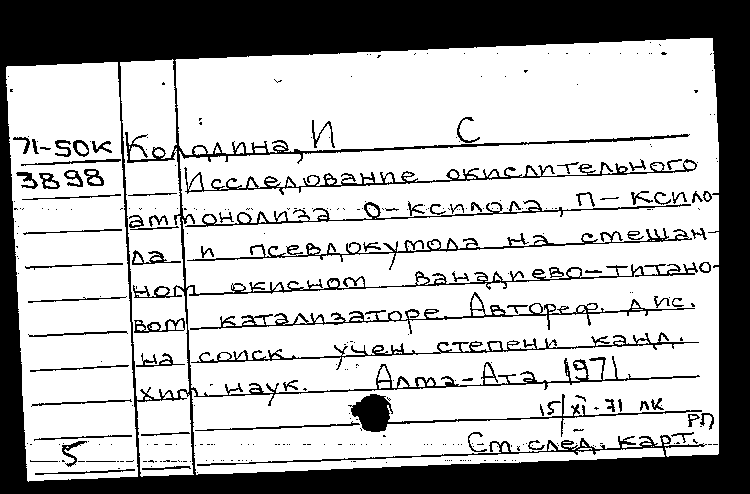 71-50к Колодина, И С
3898 Исследование окислительного
аммонолиза о-ксилола, п-ксило-
ла и псевдокумола на смешан-
ном окисном ванадиево-титано-
вом катализаторе. Автореф. дис.
на соиск. учен. степени канд.
хим. наук. Алма-Ата, 1971.
15/XI-71 лк
РП
5 См. след. карт.